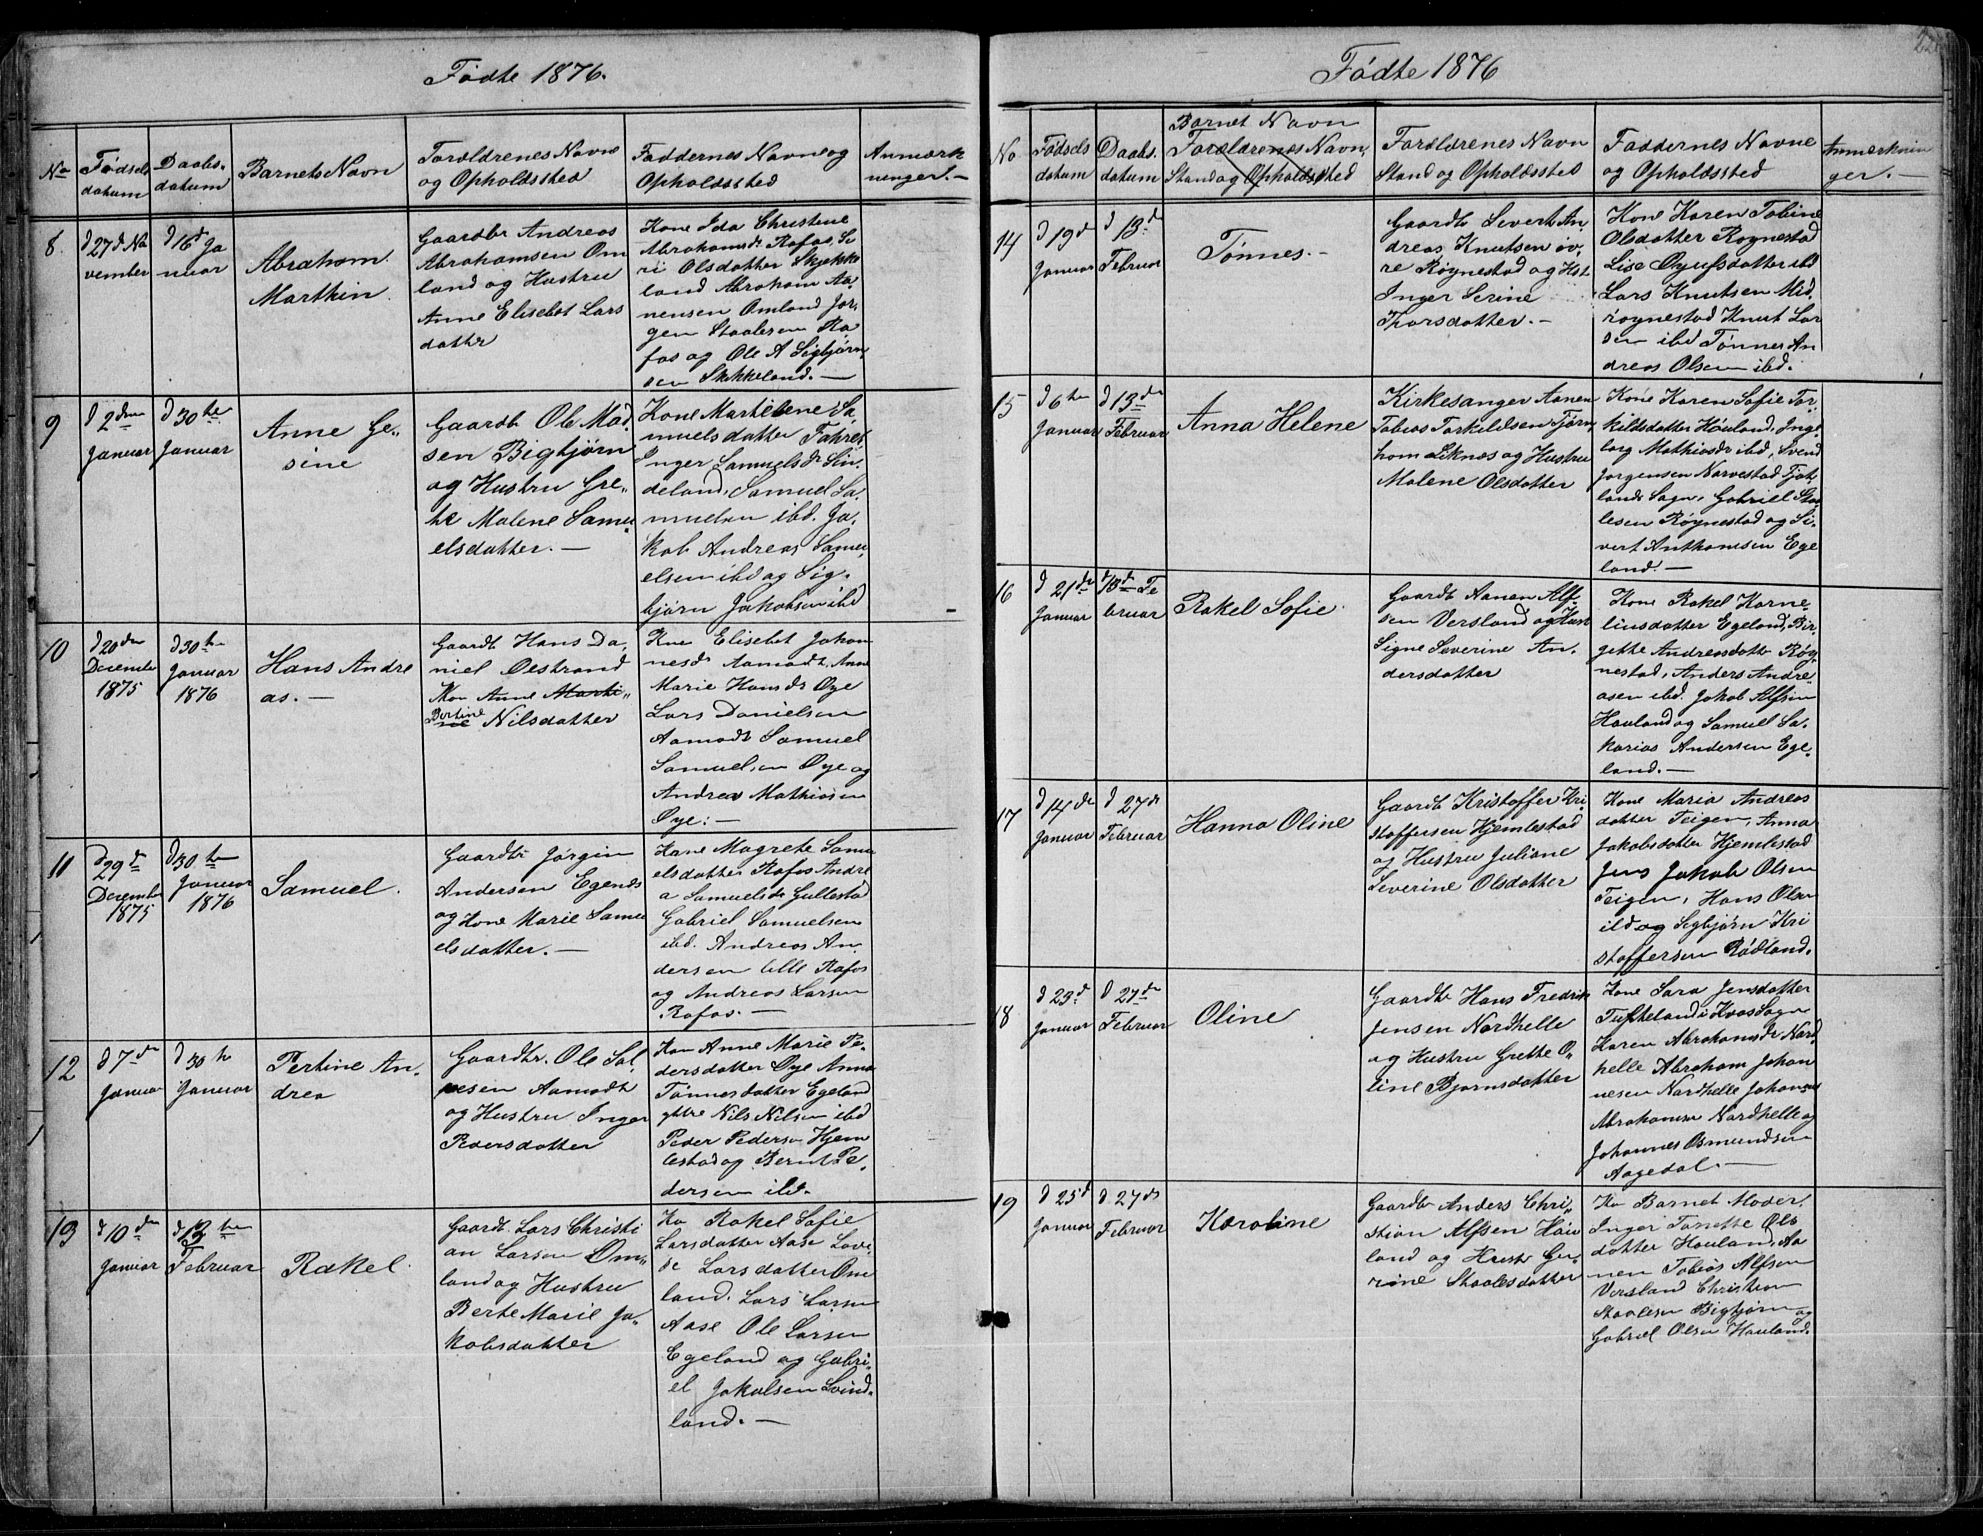 Fødte 1876.
No
Fødsels
datum
Daabs-
datum
Barnets Navn
Forældrenes Navne
og Opholdssted
Faddernes Navne og
Opholdssted
Anmærk
ninger.-
8.
d 27 d No
vember
d 16 d Ja
nuar
Abraham
Marthin.
Gaardbr Andreas
Abrahamsen Om
land og Hustru
Anne Elisebet Lars
datter
Kone Ida Christine
Abrahamsdr Rafos, Se
ri Olsdatter Skjekke
land Abraham Aa
nensen Omland Jør.
gen Staalesen Ra
fos og Ole A Sigbjørn
sen Skikkeland. -
9
d 2 den
Januar
d 30 te
Januar
Anne Ge-
sine
Gaardb Ole Mad
sen Bigbjørn
og Hustru Gre-
te Malene Samu
elsdatter. -
Kone Martilene Sa
muelsdatter
Inger Samuelsdr Sin,
deland, Samuel Sa.
muelsen ibd. Ja.
kob Andreas Samu
elsen ibd og Sig.
bjørn Jakobsen ibd
10
d 20 den
December
1875
d 30 te
Januar
1876
Hans Andre
as. -
Gaardb Hans Da
niel Oestrand
Kon Anne Marti-
Bertine
ne Nilsdatter
Kne Elisebet Johan
nesdr Aamodt, Anne
Marie Hansdr Øye
Lars Danielsen
Aamodt Samuel
Samuelsen Øye og
Andrea Mathiasen
Øye: -
11
d 29 d
December
1875
d 30 te
Januar
1876
Samuel.
Gaardbr Jørgen
Andersen Egenes
og Kone Marie Samu
elsdatter. -
Kone Magrete Samu
elsdatter Rafos Andre
a Samuelsdr Gullestad
Gabriel Samuelsen
ibd. Andreas An
dersen lille Rafos
og Andreas Larsen
Rafos. -
12
d 7 de
Januar
d 30 te
Januar
Pertine An-
drea
Gaardbr. Ole Sal
vesen Aamodt
og Hustru Inger
Pedersdatter
Kon Anne Marie Pe-
dersdatter Øye Anna
Tønnesdatter Egeland
Nils Nilsen ibd
Peder Pedersen Hjem
lestad og Bernt Pe-
dersen ibd.
13
d 10 den
Januar
d 13 ten
Februar
Rakel.
Gaardb. Lars Christi
an Larsen Om-
land og Hustru
Berte Marie Ja-
kobsdatter
Ko Rakel Sofie
Larsdatter Aase Lovi-
se Larsdatter Om
land. Lars Larsen
Aase Ole Larsen
Egeland og Gabri-
el Jakobsen Lind-
land. -
Fødte 1876
22
No
Fødsels
datum
Daabs.
datum
Barnet Navn
Forældrenes Navn,
Stand og Opholdssted
Forældrenes Navn
Stand og Opholdssted
Faddernes Navne
og Opholdssted
Anmerknin
ger. -
14
d 19 d
Januar
d 13 de
Februar
Tønnes. -
Gaardb Severt An
dreas Knutsen øv-
re Røynestad og Hst
Inger Serine
Thorsdatter. -
Kone Karen Tobine
Olsdatter Røynestad
Lise Øyufsdatter ibd
Lars Knutsen Mid
røynestad Knut Lar
sen ibd Tønnes An
dreas Olsen ibd.
15
d 6 te
Januar
d 13 de
Februar
Anna Helene
Kirkesanger Aanen
Tobias Torkildsen Tjørn
hom Liknes og Hustru
Malene Olsdatter
Kone Karen Sofie Tor-
kildsdatter Høuland, Inge
borg Mathiasdr ibd, Svend
Jørgensen Narvestad Fjot
lands Sogn, Gabriel Staa
lesen Røynestad og Si-
vert Anthonsen Ege
land. -
16
d 21 de
Januar
d 13 d Fe
bruar
Rakel Sofie.
Gaardb Aanen Alf
sen Versland og Hust
Signe Severine An-
dersdatter
Kone Rakel Korne-
liusdatter Egeland, Bir-
gitte Andreasdatt Røy-
nestad, Anders Andre-
asen ibd. Jakob Alfsen
Houland og Samuel Sa-
karias Andersen Ege-
land. -
17
d 14 de
Januar
d 27 de
Februar
Hanna Oline
Gaardb Kristoffer Kri-
stoffersen Hjemlestad
og Hustru Juliane
Severine Olsdatter
Kone Maria Andreas
datter Teigen, Anna
Jakobsdatter Hjemlestad
Jens Jakob Olsen
Teigen, Hans Olsen
ibd og Sigbjørn Kri
stoffersen Rødland.
18
d 23 d
Januar
d 27 de
Februar
Oline
Gaardb Hans Fredrik
Jensen Nordhelle
og Hustru Grethe O-
line Bjørnsdatter
Kone Sara Jensdatter
Tufteland i Kvas Sogn
Karen Abrahamsdr Nord
helle Abraham Johan
nesen Nordhelle Johannes
Abrahamsen Nordhelle og
Johannes Osmundsen
Aagedal. -
19
d 25 d
Januar
d 27 de
Februar
Karoline
Gaardb Anders Chri-
stian Alfsen Hou
land og Hust Gu-
rine Staalesdatter
Ko Barnet Moder.
Inger Tonette Ols
datter Houland, Aa
nen Tobias Alfsen
Versland Christian
Staalesen Bigbjørn og
Gabriel Olsen Houland.